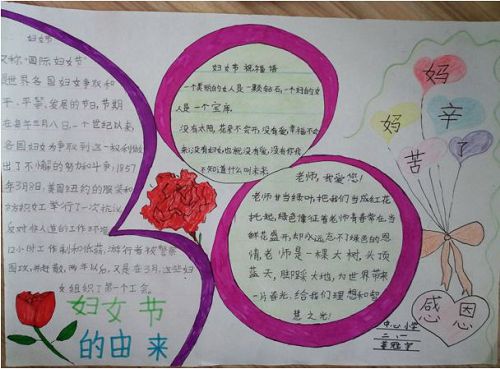 妇女节
又称"国际妇女节"
是世界各国妇女争取和
平、平等、发展的节日,节期
在每年三月八日,一个世纪以来,
各国妇女为争取到这一权利做
出了不懈的努力和斗争,1857
年3月8日,美国纽约的服装和
纺织女工举行了一次抗议
反对非人道的工作环境
12小时工作制和低薪,游行者被警察
围攻,并赶散,两年以后,又是在3月,这些妇
女组织了第一个工会。
妇女节
的由来
妇女节祝福语
一个美丽的女人是一颗钻石,一个好的女
人是一个宝库
没有太阳,花朵不会开,没有爱,幸福不会
来,没有妇女也就没有爱,没有你我
不知道什么叫未来
老师,我爱您!
老师甘当绿叶,把我们当成红花
托起,绿色像征着老师青春常在,当
鲜花盛开,却永远忘不了绿色的恩
情,老师是一棵大树,头顶
蓝天,脚踩大地,为世界带来
一片春光,给我们理想和智
慧之光!
妈
妈
辛
苦
了
感恩
中心小学
二、一